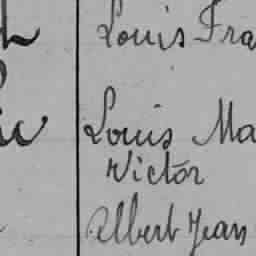 Louis Fra
Louis Ma
Victor
Albert Jean